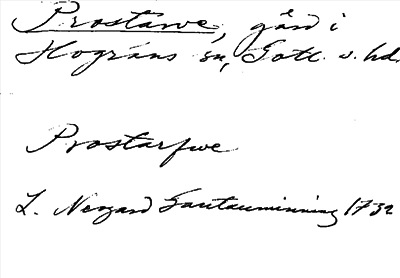 Prostarve, gård i
Hogräns sn, Gotl. s. hd.
Prostarfwe
L. Nergard Gautauminning 1732